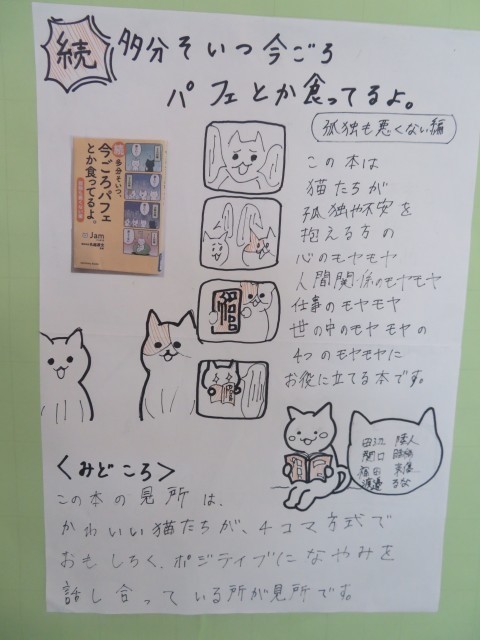 続
多分そいつ今ごろ
パフェとか食ってるよ。
孤独も悪くない編
続 多分そいつ、
今ごろパフェ
とか食ってるよ。
Jam
この本は
猫たちが
孤独や不安を
抱える方の
心のモヤモヤ
人間関係のモヤモヤ
仕事のモヤモヤ
世の中のモヤモヤの
4つのモヤモヤに
お役に立てる本です。
田辺 陸人
関口
<みどころ>
この本の見所は、
かわいい猫たちが、4コマ方式で
おもしろく、ポジティブになやみを
話し合っている所が見所です。